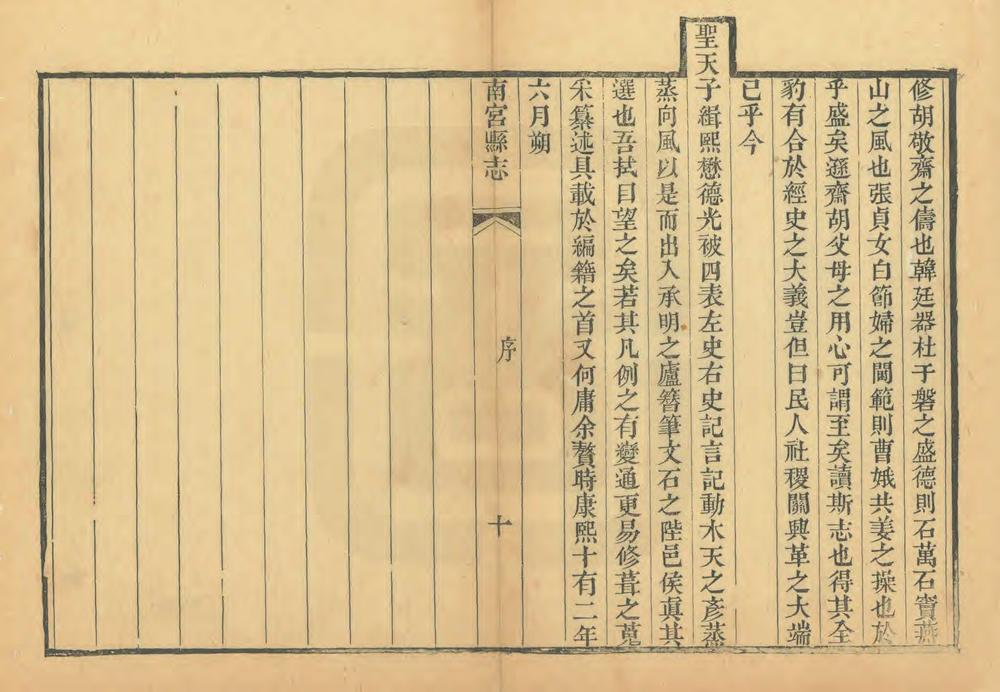 修胡敬齋之儔也韓廷器杜于磐之盛德則石萬石竇燕
山之風也張貞女白節婦之閫範則曹娥共姜之操也於
乎盛矣遜齋胡父母之用心可謂至矣讀斯志也得其全
豹有合於經史之大義豈但曰民人社稷關興革之大端
已乎今
聖天子緝熙懋德光被四表左史右史記言記動木天之彥蒸
蒸向風以是而出入承明之廬簪筆文石之陛邑侯真其
選也吾拭目望之矣若其凡例之有變通更易修葺之蒐
采纂述具載於編籍之首又何庸余贅時康熙十有二年
六月朔
南宮縣志 序 十